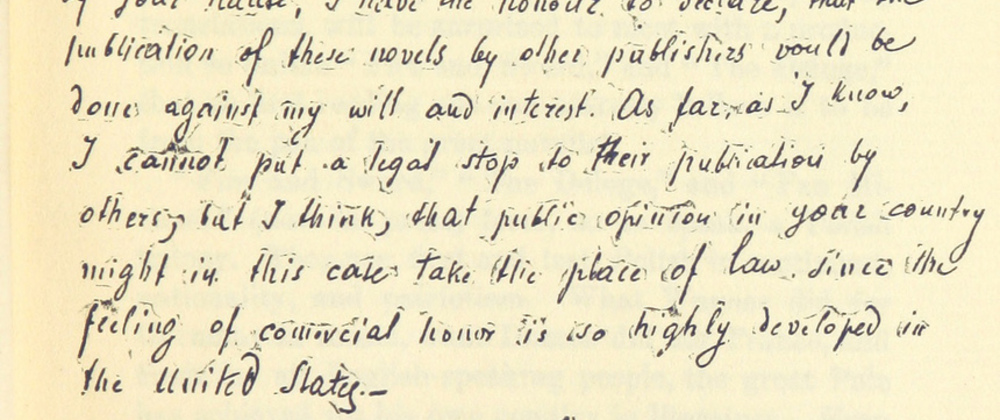 by your house, I have the honour to declare, that the
publication of these novels by other publishers vould be
done against my will and interest. As far, as I know,
I cannot put a legal stop to their publication by
others, but I think, that public opinion in your country
might in this case take the place of law. since the
feeling of comercial honor is so highly developed in
the United States.–